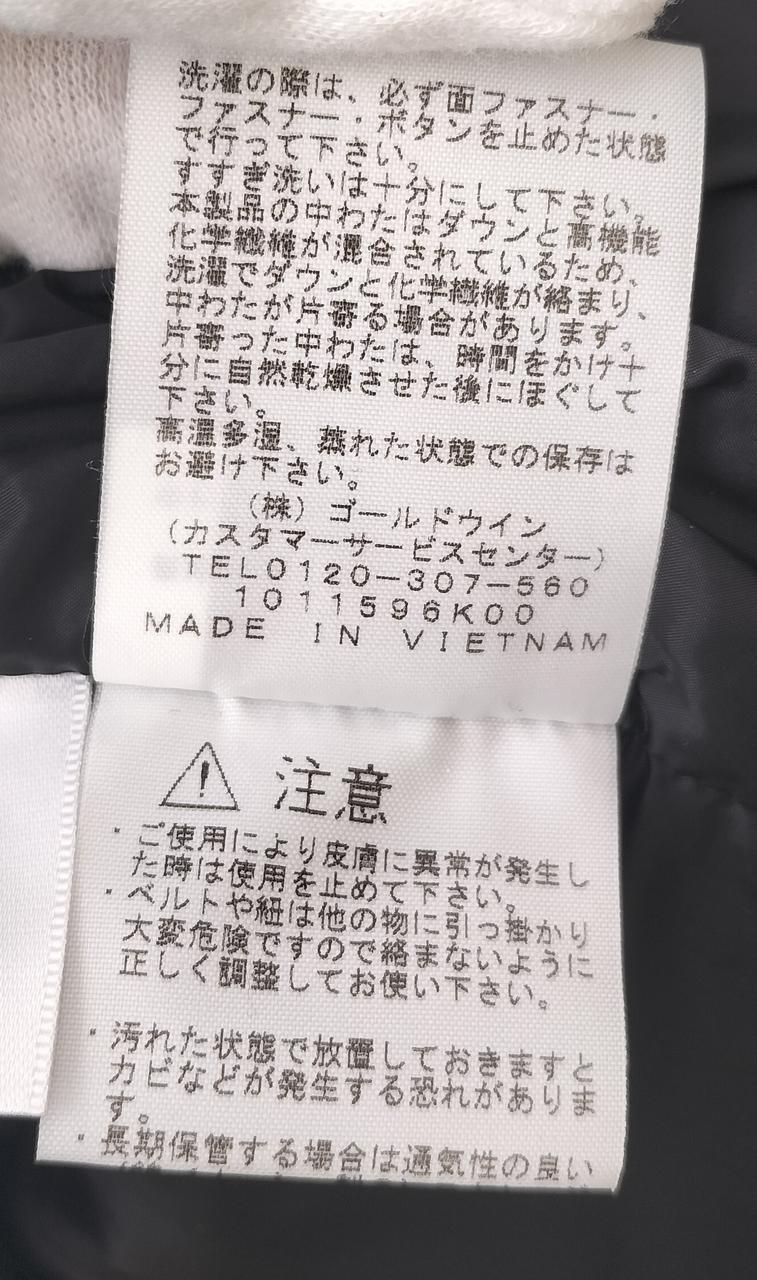 洗濯の際は、必ず面ファスナー・
ファスナー・ボタンを止めた状態
で行って下さい。
すすぎ洗いは十分にして下さい。
本製品の中わたはダウンと高機能
化学繊維が混合されているため、
洗濯でダウンと化学繊維が絡まり、
中わたが片寄る場合があります。
片寄った中わたは、時間をかけ十
分に自然乾燥させた後にほぐして
下さい。
高温多湿、蒸れた状態での保存は
お避け下さい。
(株) ゴールドウイン
(カスタマーサービスセンター)
TEL0120-307-560
1011596K00
MADE IN VIETNAM
注意
・ご使用により皮膚に異常が発生し
た時は使用を止めて下さい。
・ベルトや紐は他の物に引っ掛かり
大変危険ですので絡まないように
正しく調整してお使い下さい。
・汚れた状態で放置しておきますと
カビなどが発生する恐れがありま
す。
・長期保管する場合は通気性の良い